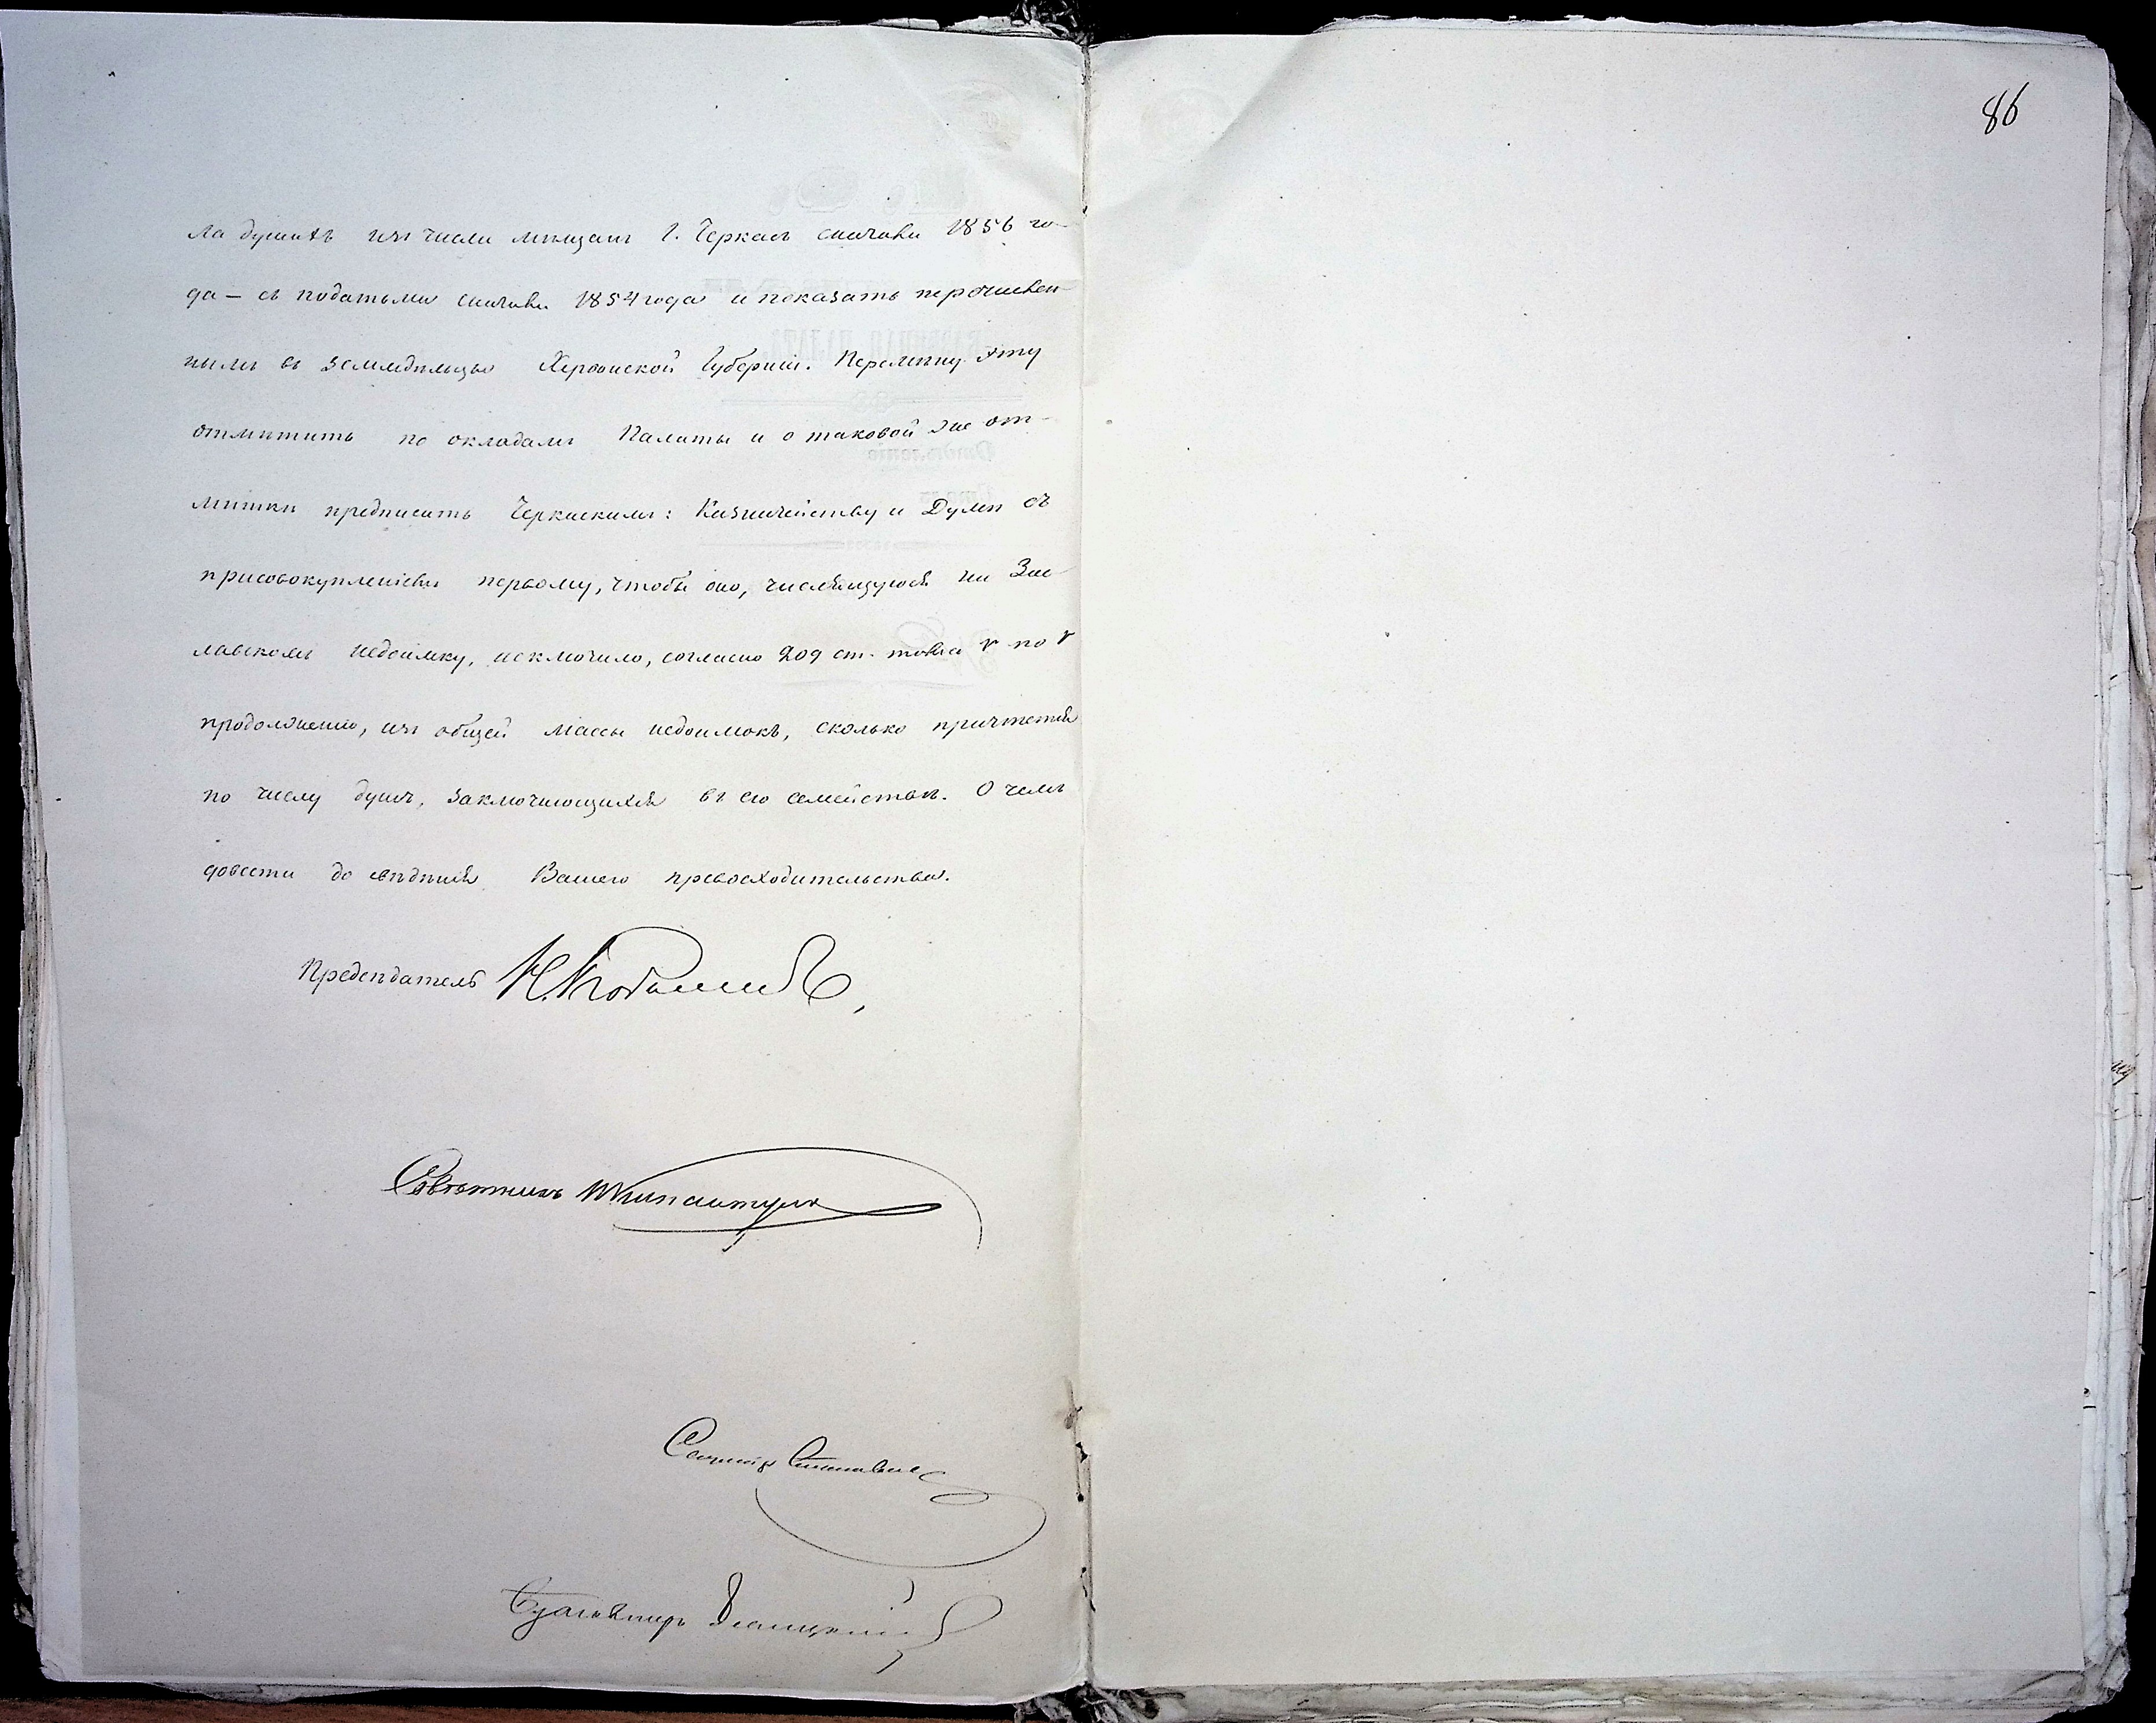 86
ла душахъ изъ числа мѣщанъ г. Черкасъ сначала 1856 го-
да — съ податьми сначала 1854 года и показать перечислен-
нымъ въ земледѣльцы Херсонской Губерніи. Перемѣну эту
отмѣтить по окладамъ Палаты и о таковой же от-
мѣткѣ предписать Черкаскимъ: Казначейству и Думѣ съ
присовокупленіемъ первому, чтобы оно, числящуюся на Зас-
лавскомъ недоимку, исключило, согласно 209 ст. тома V по V
продолженію, изъ общей массы недоимокъ, сколько причтется
по числу душъ, заключающихся въ его семействѣ. О чемъ
довести до свѣдѣнія Вашего превосходительства.
Предсѣдатель
Совѣтникъ
Бухгалтеръ